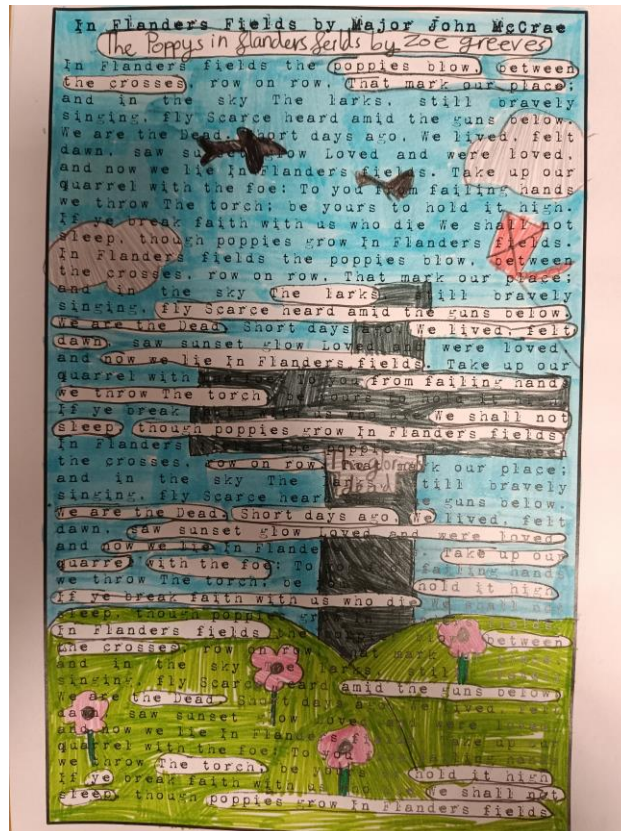 In Flanders Fields by Major John McCrae
The Poppys in flanders feilds by Zoe greeves
In Flanders fields the poppies blow, between
the crosses, row on row, That mark our place;
and in the sky The larks, still bravely
singing, fly Scarce heard amid the guns below.
We are the Dead. Short days ago, We lived, felt
dawn, saw sunset glow Loved and were loved,
and now we lie In Flanders fields. Take up our
quarrel with the foe: To you from failing hands
we throw The torch; be yours to hold it high.
If ye break faith with us who die We shall not
sleep, though poppies grow In Flanders fields.
In Flanders fields the poppies blow, between
the crosses, row on row, That mark our place;
and in the sky The larks, still bravely
singing, fly Scarce heard amid the guns below.
We are the Dead. Short days ago, We lived, felt
dawn, saw sunset glow Loved and were loved
and now we lie In Flanders fields. Take up our
quarrel with To you from failing hand
we throw The torch be yours to hold
If ye break We shall not
sleep, though poppies grow In Flanders fields
In Flanders
the crosses, row on row, mark our place;
and in the sky The still bravely
singing, fly Scarce hear guns below.
We are the Dead. Short days ago, We lived, felt
dawn, saw sunset glow Loved and were loved
and now we lie In Flande Take up our
quarre with the foe: To failing hands
we throw The torch; be hold it high
If ye break faith with us who die We shall not
sleep, though poppies
In Flanders fields the between
the crosses, row on row, that mark
and in the sky larks
singing, fly Scarce heard amid the guns below
We are the Dead. Short days ago
dawn, saw sunset glow Loved and
and now we lie In Flanders Take up our
quarrel with the foe: To you
we throw The torch, be hold it high
If ye break faith with us who We shall not
sleep, though poppies grow In Flanders fields